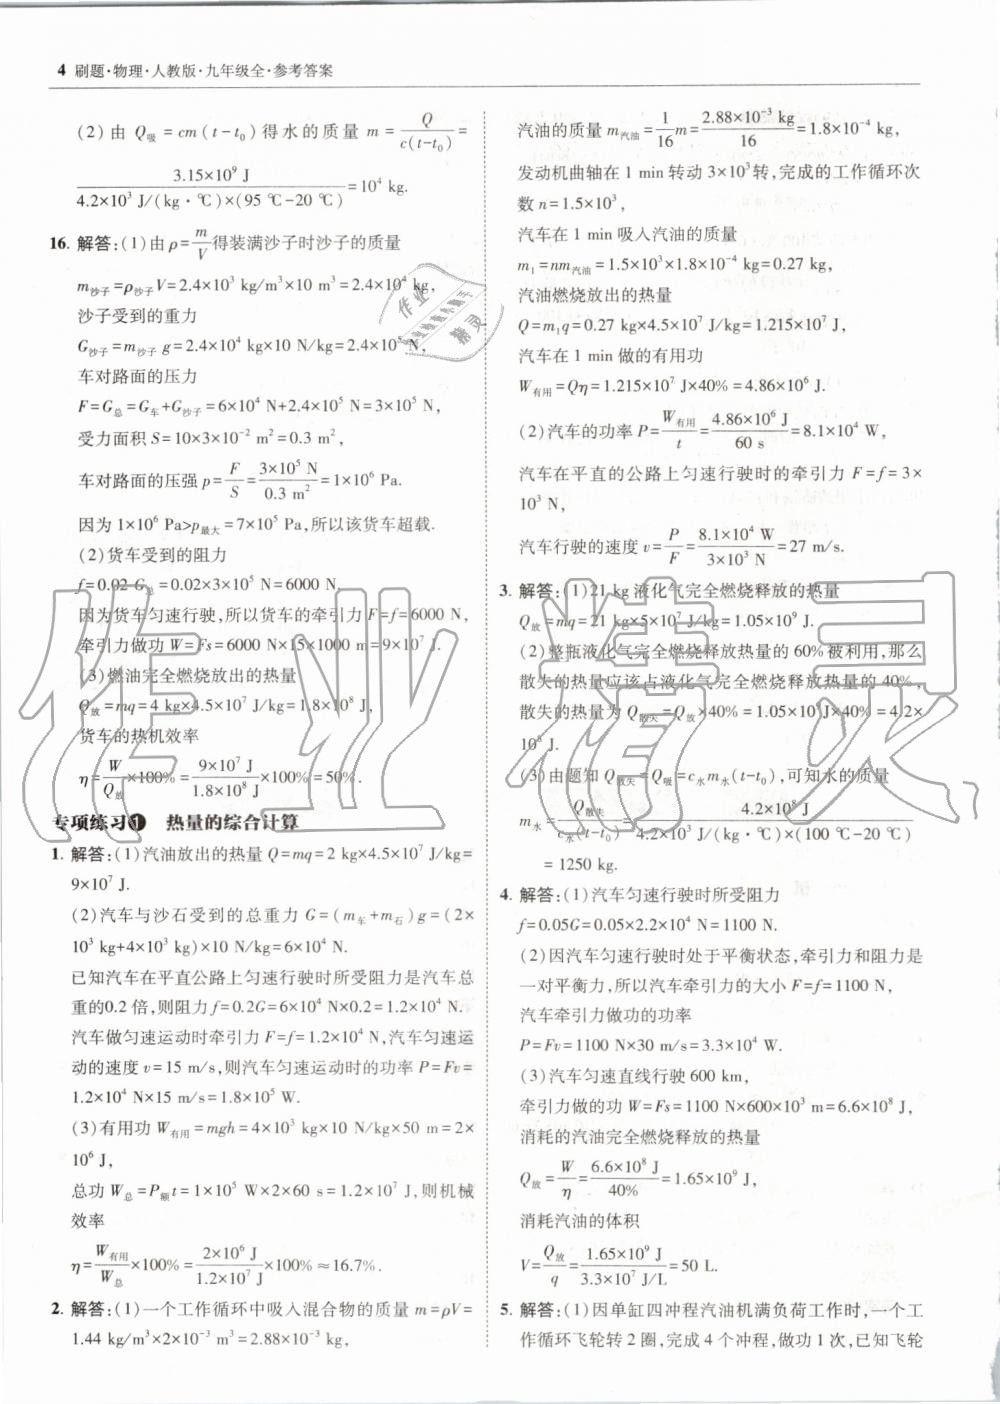 4 刷题·物理·人教版·九年级全·参考答案
(2)由 Q吸=cm(t-t₀)得水的质量 m=Q/c(t-t₀)=
3.15×10⁹ J/4.2×10³ J/(kg·℃)×(95 ℃-20 ℃)=10⁴ kg.
16. 解答:(1)由 ρ=m/V得装满沙子时沙子的质量
m沙子=ρ沙子V=2.4×10³ kg/m³×10 m³=2.4×10⁴ kg,
沙子受到的重力
G沙子=m沙子 g=2.4×10⁴ kg×10 N/kg=2.4×10⁵ N,
车对路面的压力
F=G总=G车+G沙子=6×10⁴ N+2.4×10⁵ N=3×10⁵ N,
受力面积 S=10×3×10⁻² m²=0.3 m²,
车对路面的压强 p=F/S=3×10⁵ N/0.3 m²=1×10⁶ Pa.
因为 1×10⁶ Pa>p最大=7×10⁵ Pa,所以该货车超载.
(2)货车受到的阻力
f=0.02 G总=0.02×3×10⁵ N=6000 N,
因为货车匀速行驶,所以货车的牵引力 F=f=6000 N,
牵引力做功 W=Fs=6000 N×15×1000 m=9×10⁷ J.
(3)燃油完全燃烧放出的热量
Q放=mq=4 kg×4.5×10⁷ J/kg=1.8×10⁸ J,
货车的热机效率
η=W/Q放×100%=9×10⁷ J/1.8×10⁸ J×100%=50%.
专项练习1 热量的综合计算
1. 解答:(1)汽油放出的热量 Q=mq=2 kg×4.5×10⁷ J/kg=
9×10⁷ J.
(2)汽车与沙石受到的总重力 G=(m车+m石)g=(2×
10³ kg+4×10³ kg)×10 N/kg=6×10⁴ N.
已知汽车在平直公路上匀速行驶时所受阻力是汽车总
重的0.2 倍,则阻力 f=0.2G=6×10⁴ N×0.2=1.2×10⁴ N.
汽车做匀速运动时牵引力 F=f=1.2×10⁴ N,汽车匀速运
动的速度 v=15 m/s,则汽车匀速运动时的功率 P=Fv=
1.2×10⁴ N×15 m/s=1.8×10⁵ W.
(3)有用功 W有用=mgh=4×10³ kg×10 N/kg×50 m=2×
10⁶ J,
总功 W总=P额t=1×10⁵ W×2×60 s=1.2×10⁷ J,则机械
效率
η=W有用/W总×100%=2×10⁶ J/1.2×10⁷ J×100%≈16.7%.
2. 解答:(1)一个工作循环中吸入混合物的质量 m=ρV=
1.44 kg/m³×2×10⁻³ m³=2.88×10⁻³ kg,
汽油的质量 m汽油=1/16m=2.88×10⁻³ kg/16=1.8×10⁻⁴ kg,
发动机曲轴在 1 min 转动 3×10³转,完成的工作循环次
数 n=1.5×10³,
汽车在 1 min 吸入汽油的质量
m₁=nm汽油=1.5×10³×1.8×10⁻⁴ kg=0.27 kg,
汽油燃烧放出的热量
Q=m₁q=0.27 kg×4.5×10⁷ J/kg=1.215×10⁷ J,
汽车在 1 min 做的有用功
W有用=Qη=1.215×10⁷ J×40%=4.86×10⁶ J.
(2)汽车的功率 P=W有用/t=4.86×10⁶ J/60 s=8.1×10⁴ W,
汽车在平直的公路上匀速行驶时的牵引力 F=f=3×
10³ N,
汽车行驶的速度 v=P/F=8.1×10⁴ W/3×10³ N=27 m/s.
3. 解答:(1)21 kg 液化气完全燃烧释放的热量
Q放=mq=21 kg×5×10⁷ J/kg=1.05×10⁹ J.
(2)整瓶液化气完全燃烧释放热量的 60%被利用,那么
散失的热量应该占液化气完全燃烧释放热量的 40%,
散失的热量为 Q散失=Q放×40%=1.05×10⁹ J×40%=4.2×
10⁸ J.
(3)由题知 Q散失=Q吸=c水m水(t-t₀),可知水的质量
m水=Q散失/c水(t-t₀)=4.2×10⁸ J/4.2×10³ J/(kg·℃)×(100 ℃-20 ℃)
=1250 kg.
4. 解答:(1)汽车匀速行驶时所受阻力
f=0.05G=0.05×2.2×10⁴ N=1100 N.
(2)因汽车匀速行驶时处于平衡状态,牵引力和阻力是
一对平衡力,所以汽车牵引力的大小 F=f=1100 N,
汽车牵引力做功的功率
P=Fv=1100 N×30 m/s=3.3×10⁴ W.
(3)汽车匀速直线行驶 600 km,
牵引力做的功 W=Fs=1100 N×600×10³ m=6.6×10⁸ J,
消耗的汽油完全燃烧释放的热量
Q放=W/η=6.6×10⁸ J/40%=1.65×10⁹ J,
消耗汽油的体积
V=Q放/q=1.65×10⁹ J/3.3×10⁷ J/L=50 L.
5. 解答:(1)因单缸四冲程汽油机满负荷工作时,一个工
作循环飞轮转 2 圈,完成 4 个冲程,做功 1 次,已知飞轮
作业精灵